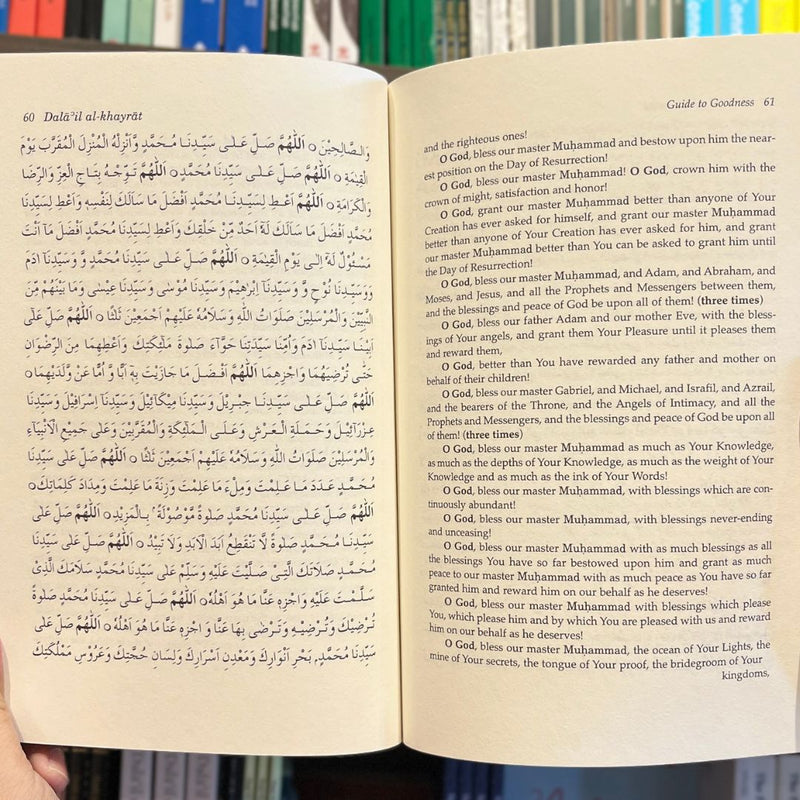 60 Dalāʾil al-khayrāt
وَالصَّالِحِيْنَ ○ اَللّٰهُمَّ صَلِّ عَلٰى سَيِّدِنَا مُحَمَّدٍ وَّاَنْزِلْهُ الْمُنْزِلَ الْمُقَرَّبَ يَوْمَ
الْقِيٰمَةِ ○ اَللّٰهُمَّ صَلِّ عَلٰى سَيِّدِنَا مُحَمَّدٍ ○ اَللّٰهُمَّ تَوِّجْهُ بِتَاجِ الْعِزِّ وَالرِّضَا
وَالْكَرَامَةِ ○ اَللّٰهُمَّ اَعْطِ لِسَيِّدِنَا مُحَمَّدٍ اَفْضَلَ مَا سَاَلَكَ لِنَفْسِهٖ وَاَعْطِ لِسَيِّدِنَا
مُحَمَّدٍ اَفْضَلَ مَا سَاَلَكَ لَهٗٓ اَحَدٌ مِّنْ خَلْقِكَ وَاَعْطِ لِسَيِّدِنَا مُحَمَّدٍ اَفْضَلَ مَآ اَنْتَ
مَسْئُوْلٌ لَهٗٓ اِلٰى يَوْمِ الْقِيٰمَةِ ○ اَللّٰهُمَّ صَلِّ عَلٰى سَيِّدِنَا مُحَمَّدٍ وَّ وَسَيِّدِنَآ اٰدَمَ
وَوَسَيِّدِنَا نُوْحٍ وَّ وَسَيِّدِنَآ اِبْرٰهِيْمَ وَسَيِّدِنَا مُوْسٰى وَسَيِّدِنَا عِيْسٰى وَمَا بَيْنَهُمْ مِّنَ
النَّبِيّٖنَ وَالْمُرْسَلِيْنَ صَلَوَاتُ اللّٰهِ وَسَلَامُهٗ عَلَيْهِمْ اَجْمَعِيْنَ ثَلٰثًا ○ اَللّٰهُمَّ صَلِّ عَلٰٓى
اَبِيْنَا سَيِّدِنَآ اٰدَمَ وَاُمِّنَا سَيِّدَتِنَا حَوَّآءَ صَلٰوةَ مَلٰٓئِكَتِكَ وَاَعْطِهِمَا مِنَ الرِّضْوَانِ
حَتّٰى تُرْضِيَهُمَا وَاجْزِهِمَا اللّٰهُمَّ اَفْضَلَ مَا جَازَيْتَ بِهٖٓ اَبًا وَّ اُمًّا عَنْ وَّلَدَيْهِمَا ○
اَللّٰهُمَّ صَلِّ عَلٰى سَيِّدِنَا جِبْرِيْلَ وَسَيِّدِنَا مِيْكَآئِيْلَ وَسَيِّدِنَآ اِسْرَافِيْلَ وَسَيِّدِنَا
عِزْرَآئِيْلَ وَحَمَلَةِ الْعَرْشِ وَعَلَى الْمَلٰٓئِكَةِ وَالْمُقَرَّبِيْنَ وَعَلٰى جَمِيْعِ الْاَنْبِيَآءِ
وَالْمُرْسَلِيْنَ صَلَوَاتُ اللّٰهِ وَسَلَامُهٗ عَلَيْهِمْ اَجْمَعِيْنَ ثَلٰثًا ○ اَللّٰهُمَّ صَلِّ عَلٰى سَيِّدِنَا
مُحَمَّدٍ عَدَدَ مَا عَلِمْتَ وَمِلْءَ مَا عَلِمْتَ وَزِنَةَ مَا عَلِمْتَ وَمِدَادَ كَلِمَاتِكَ ○
اَللّٰهُمَّ صَلِّ عَلٰى سَيِّدِنَا مُحَمَّدٍ صَلٰوةً مَّوْصُوْلَةً ۢ بِالْمَزِيْدِ ○ اَللّٰهُمَّ صَلِّ عَلٰى
سَيِّدِنَا مُحَمَّدٍ صَلٰوةً لَّا تَنْقَطِعُ اَبَدَ الْاَبَدِ وَلَا تَبِيْدُ ○ اَللّٰهُمَّ صَلِّ عَلٰى سَيِّدِنَا
مُحَمَّدٍ صَلَاتَكَ الَّتِىْ صَلَّيْتَ عَلَيْهِ وَسَلِّمْ عَلٰى سَيِّدِنَا مُحَمَّدٍ سَلَامَكَ الَّذِىْ
سَلَّمْتَ عَلَيْهِ وَاجْزِهٖ عَنَّا مَا هُوَ اَهْلُهٗ ○ اَللّٰهُمَّ صَلِّ عَلٰى سَيِّدِنَا مُحَمَّدٍ صَلٰوةً
تُرْضِيْكَ وَتُرْضِيْهِ وَتَرْضٰى بِهَا عَنَّا وَ اجْزِهٖ عَنَّا مَا هُوَ اَهْلُهٗ ○ اَللّٰهُمَّ صَلِّ عَلٰى
سَيِّدِنَا مُحَمَّدٍ بَحْرِ اَنْوَارِكَ وَمَعْدِنِ اَسْرَارِكَ وَلِسَانِ حُجَّتِكَ وَعَرُوْسِ مَمْلَكَتِكَ
Guide to Goodness 61
and the righteous ones!
O God, bless our master Muḥammad and bestow upon him the near-
est position on the Day of Resurrection!
O God, bless our master Muḥammad! O God, crown him with the
crown of might, satisfaction and honor!
O God, grant our master Muḥammad better than anyone of Your
Creation has ever asked for himself, and grant our master Muḥammad
better than anyone of Your Creation has ever asked for him, and grant
our master Muḥammad better than You can be asked to grant him until
the Day of Resurrection!
O God, bless our master Muḥammad, and Adam, and Abraham, and
Moses, and Jesus, and all the Prophets and Messengers between them,
and the blessings and peace of God be upon all of them! (three times)
O God, bless our father Adam and our mother Eve, with the bless-
ings of Your angels, and grant them Your Pleasure until it pleases them
and reward them,
O God, better than You have rewarded any father and mother on
behalf of their children!
O God, bless our master Gabriel, and Michael, and Israfil, and Azrail,
and the bearers of the Throne, and the Angels of Intimacy, and all the
Prophets and Messengers, and the blessings and peace of God be upon all
of them! (three times)
O God, bless our master Muḥammad as much as Your Knowledge,
as much as the depths of Your Knowledge, as much as the weight of Your
Knowledge and as much as the ink of Your Words!
O God, bless our master Muḥammad, with blessings which are con-
tinuously abundant!
O God, bless our master Muḥammad, with blessings never-ending
and unceasing!
O God, bless our master Muḥammad with as much blessings as all
the blessings You have so far bestowed upon him and grant as much
peace to our master Muḥammad with as much peace as You have so far
granted him and reward him on our behalf as he deserves!
O God, bless our master Muḥammad with blessings which please
You, which please him and by which You are pleased with us and reward
him on our behalf as he deserves!
O God, bless our master Muḥammad, the ocean of Your Lights, the
mine of Your secrets, the tongue of Your proof, the bridegroom of Your
kingdoms,